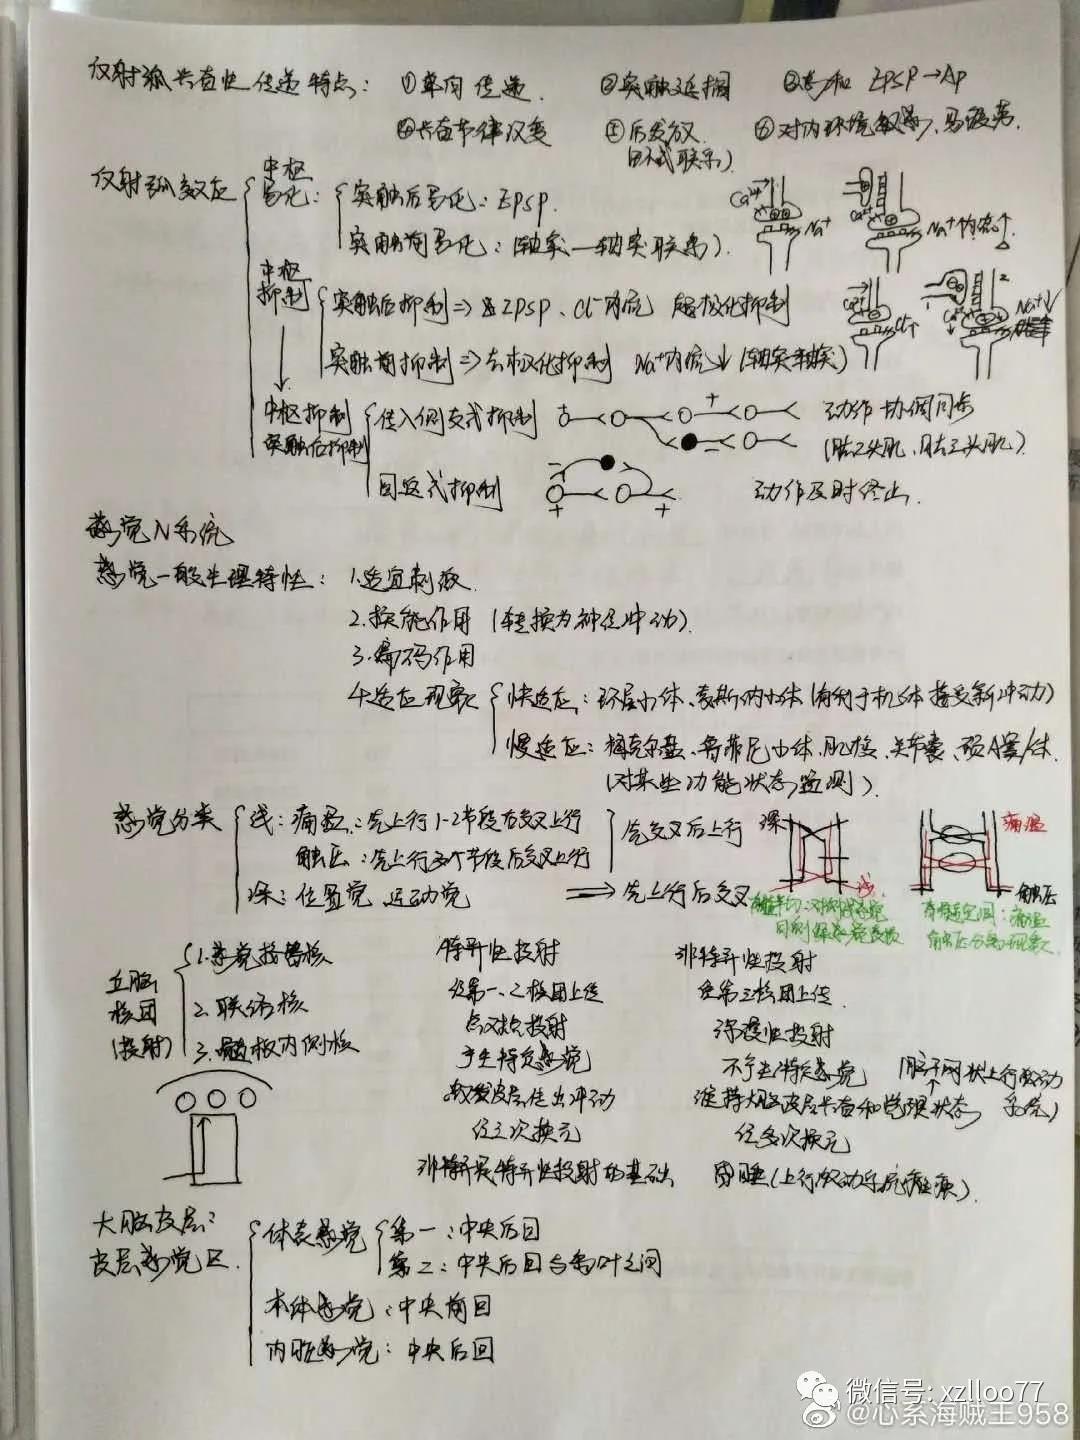 反射弧兴奋性传递特点: ①单向传递. ②突触延搁 ③总和 EPSP→AP
④兴奋节律改变 ⑤后发放 ⑥对内环境敏感、易疲劳.
(回环式联系)
反射弧效应
中枢易化: 突触后易化: EPSP.
突触前易化: (轴突—轴突联系).
Ca²⁺ Na⁺ Ca²⁺ Na⁺内流↑
中枢抑制 突触后抑制⇒ IPSP、Cl⁻内流 超极化抑制
突触前抑制⇒去极化抑制 Na⁺内流↓(轴突轴突)
Ca²⁺ Cl⁻↑ Ca²⁺ Na⁺↓
中枢抑制 突触后抑制 传入侧支式抑制 动作协调同步
(肱二头肌、肱三头肌)
回返式抑制 动作及时终止.
感觉N系统
感觉一般生理特性: 1.适宜刺激
2.换能作用 (转换为神经冲动).
3.编码作用
4.适应现象 快适应: 环层小体、麦斯纳小体(有利于机体接受新冲动)
慢适应: 梅克尔盘、鲁菲尼小体、肌梭、关节囊、颈A窦/体
(对某些功能状态监测).
感觉分类 浅: 痛温: 先上行1-2节段后交叉上行
触压: 先上行多个节段后交叉上行
先交叉后上行
深: 位置觉 运动觉 ⇒先上行后交叉
深 浅 痛温 触压
脊髓半切: 对侧浅感觉
同侧深感觉
脊髓空洞: 痛温
触压分离现象
丘脑核团(投射)
1.感觉接替核 特异性投射 非特异性投射
2.联络核 经第一、二核团上传 经第三核团上传.
3.髓板内侧核 点对点投射 弥漫性投射
产生特定感觉 不产生特定感觉 (脑干网状上行激动系统)
激发皮层传出冲动 维持大脑皮层兴奋和觉醒状态
经三次换元 经多次换元
非特异是特异性投射的基础
大脑皮层:
皮层感觉区. 体表感觉 第一: 中央后回
第二: 中央后回与岛叶之间
本体感觉: 中央前回
内脏感觉: 中央后回
微信号: xzlloo77
@心系海贼王958